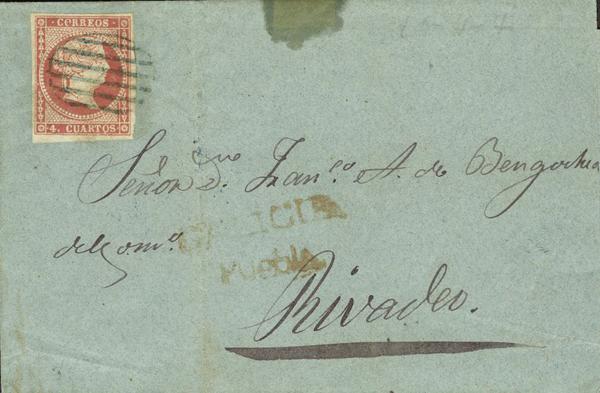 CORREOS
4. CUARTOS
Señor Dn Franco. A. de Bengochea
del Como.
GALICIA
Puebla.
Rivadeo.